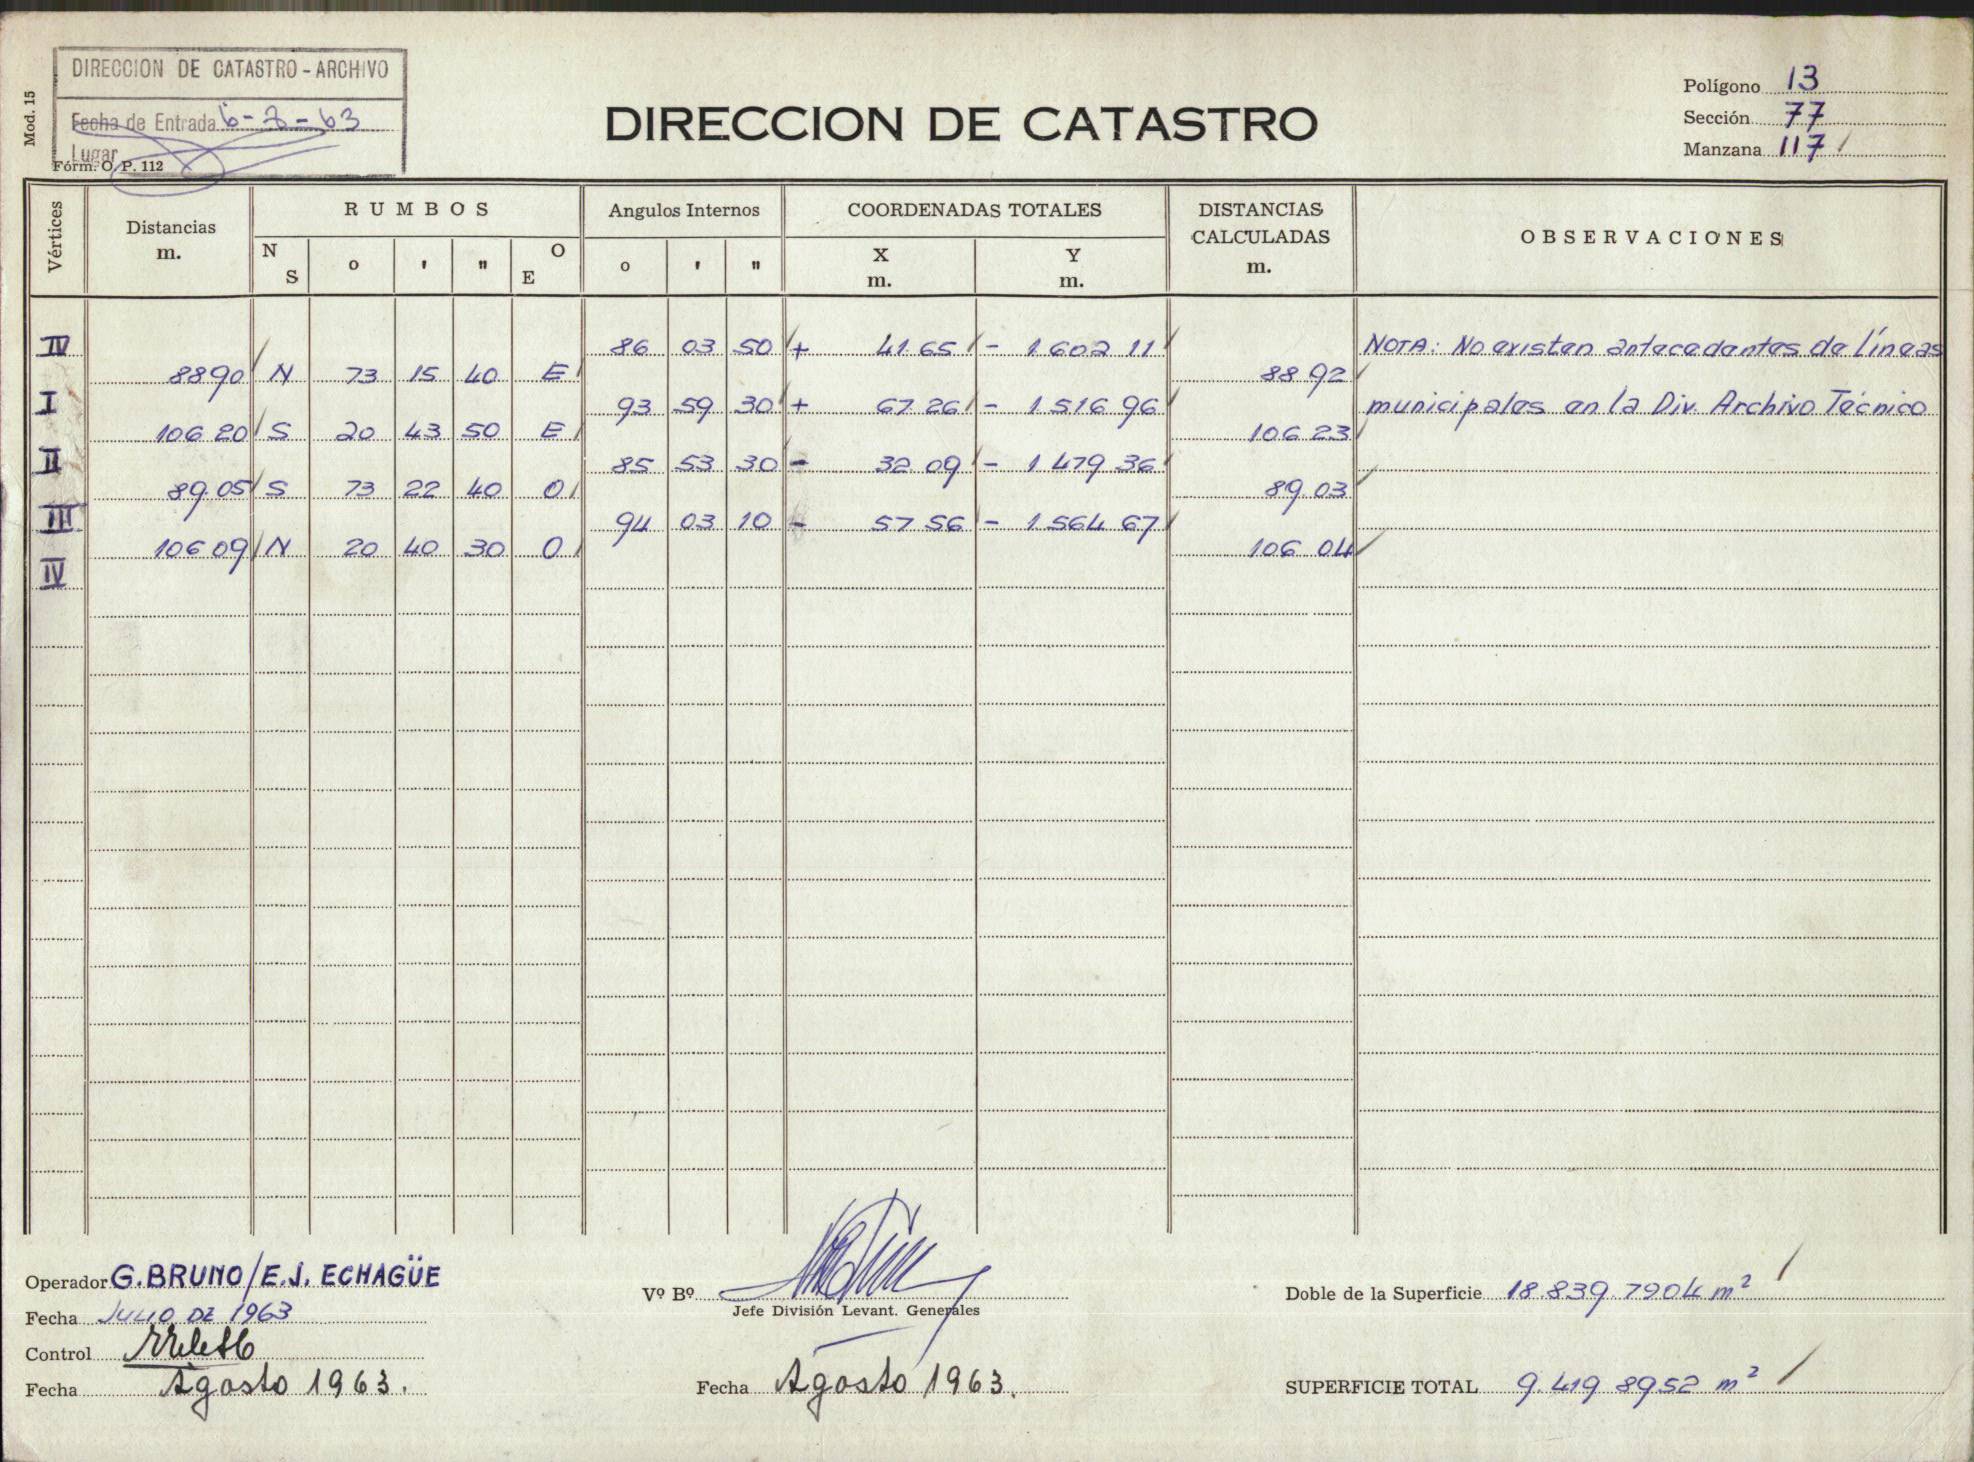 DIRECCION DE CATASTRO - ARCHIVO
Fecha de Entrada 6-8-63
Lugar
Mod. 15
Fórm. O. P. 112
DIRECCION DE CATASTRO
Polígono 13
Sección 77
Manzana 117
Vértices
Distancias
m.
RUMBOS
N S o ' " O E
Angulos Internos
o ' "
COORDENADAS TOTALES
X m. Y m.
DISTANCIAS CALCULADAS
m.
OBSERVACIONES
IV 86 03 50 + 41 65 - 1 602 11 NOTA: No existen antecedentes de líneas
88 90 N 73 15 40 E 88 92
I 93 59 30 + 67 26 - 1 516 96 municipales en la Div. Archivo Técnico
106 20 S 20 43 50 E 106 23
II 85 53 30 - 32 09 - 1 479 36
89.05 S 73 22 40 O 89 03
III 94 03 10 - 57 56 - 1 564 67
106 09 N 20 40 30 O 106 04
IV
Operador G. BRUNO / E. J. ECHAGÜE
Fecha JULIO DE 1963
Control
Fecha Agosto 1963.
Vº Bº
Jefe División Levant. Generales
Fecha Agosto 1963.
Doble de la Superficie 18.839.7904 m²
SUPERFICIE TOTAL 9.419 8952 m²